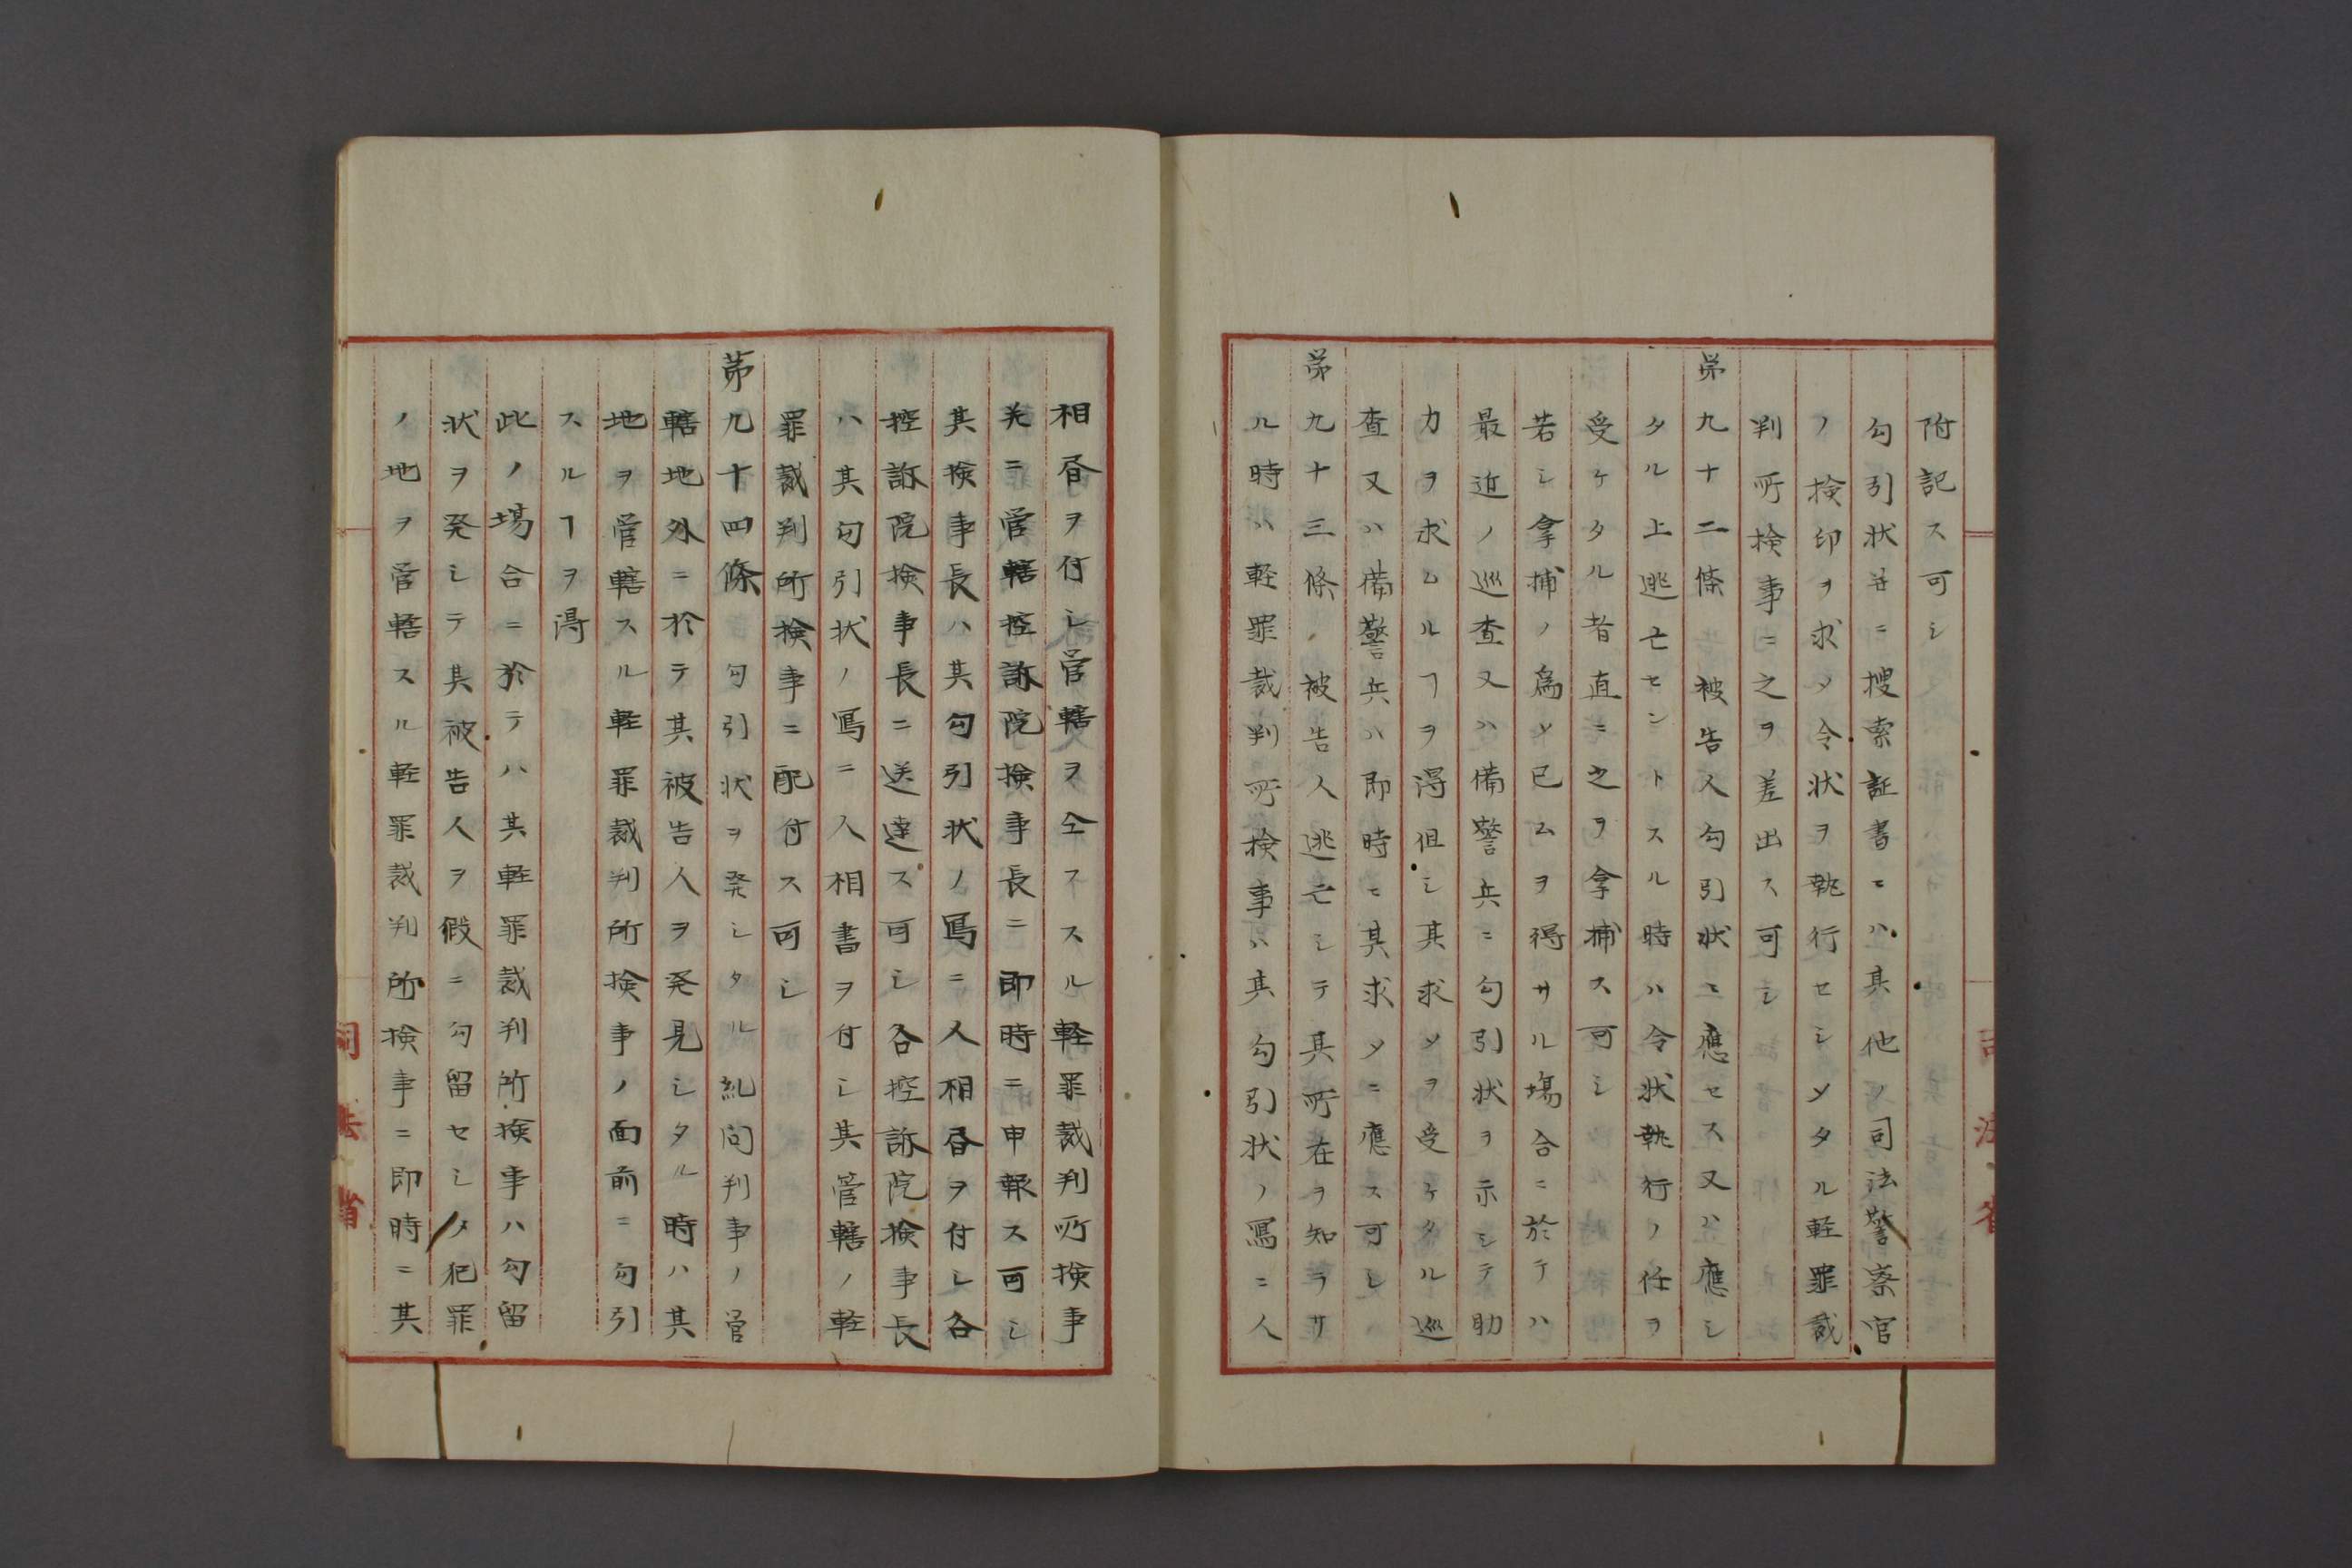 附記ス可シ
勾引状并ニ搜索証書ニハ其他ノ司法警察官
ノ検印ヲ求メ令状ヲ執行セシメタル軽罪裁
判所検事ニ之ヲ差出ス可シ
第九十二條 被告人勾引状ニ應セス又ハ應シ
タル上逃亡セントスル時ハ令状執行ノ任ヲ
受ケタル者直ニ之ヲ拿捕ス可シ
若シ拿捕ノ為メ已ムヲ得サル場合ニ於テハ
最近ノ巡査又ハ備警兵ニ勾引状ヲ示シテ助
力ヲ求ムルヿヲ得但シ其求メヲ受ケタル巡
査又ハ備警兵ハ即時ニ其求メニ應ス可シ
第九十三條 被告人逃亡シテ其所在ヲ知ラサ
ル時ハ軽罪裁判所検事ハ其勾引状ノ寫ニ人
相書ヲ付シ管轄ヲ仝フスル軽罪裁判所検事
并ニ管轄控訴院検事長ニ即時ニ申報ス可シ
其検事長ハ其勾引状ノ寫ニ人相書ヲ付シ各
控訴院検事長ニ送達ス可シ各控訴院検事長
ハ其勾引状ノ寫ニ人相書ヲ付シ其管轄ノ軽
罪裁判所検事ニ配付ス可シ
第九十四條 勾引状ヲ発シタル糺問判事ノ管
轄地外ニ於テ其被告人ヲ発見シタル時ハ其
地ヲ管轄スル軽罪裁判所検事ノ面前ニ勾引
スルヿヲ得
此ノ場合ニ於テハ其軽罪裁判所検事ハ勾留
状ヲ発シテ其被告人ヲ假ニ勾留セシメ犯罪
ノ地ヲ管轄スル軽罪裁判所検事ニ即時ニ其
司法省